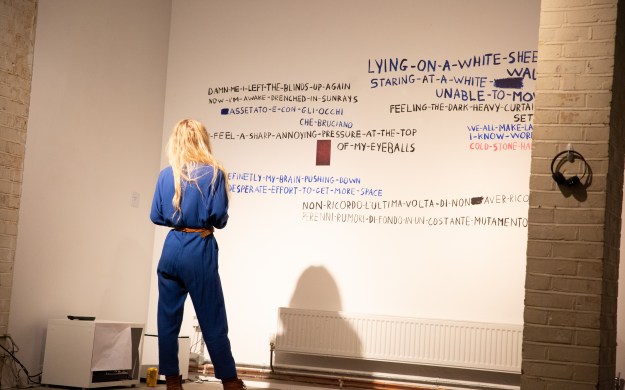 LYING-ON-A-WHITE-SHEE
WAL
STARING-AT-A-WHITE-
UNABLE-TO-MOV
DAMN-ME-I-LEFT-THE-BLINDS-UP-AGAIN
NOW-I'M-AWAKE-DRENCHED-IN-SUNRAYS
ASSETATO-E-CON-GLI-OCCHI
CHE-BRUCIANO
FEELING-THE-DARK-HEAVY-CURTAI
SET
-FEEL-A-SHARP-ANNOYING-PRESSURE-AT-THE-TOP
OF-MY-EYEBALLS
WE-ALL-MAKE-LA
I-KNOW-WOR
COLD-STONE-HA
EFINETLY-MY-BRAIN-PUSHING-DOWN
DESPERATE-EFFORT-TO-GET-MORE-SPACE
NON-RICORDO-L'ULTIMA-VOLTA-DI-NON AVER-RICO
PERENNI-RUMORI-DI-FONDO-IN-UN-COSTANTE-MUTAMENTO